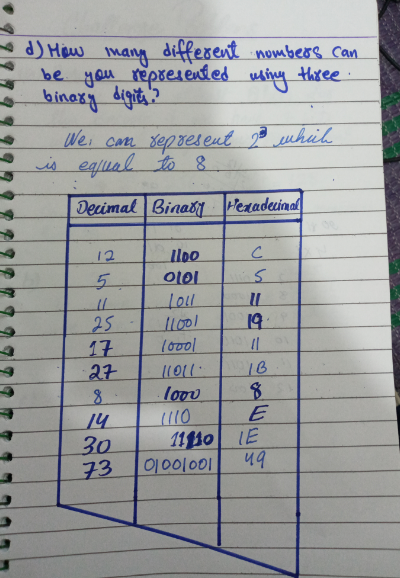 d) How many different numbers can
be you represented using three
binary digits?
We, can represent 2³ which
is equal to 8
Decimal Binary Hexadecimal
12 1100 C
5 0101 5
11 1011 11
25 11001 19
17 10001 11
27 11011 1B
8 1000 8
14 1110 E
30 11110 1E
73 01001001 49